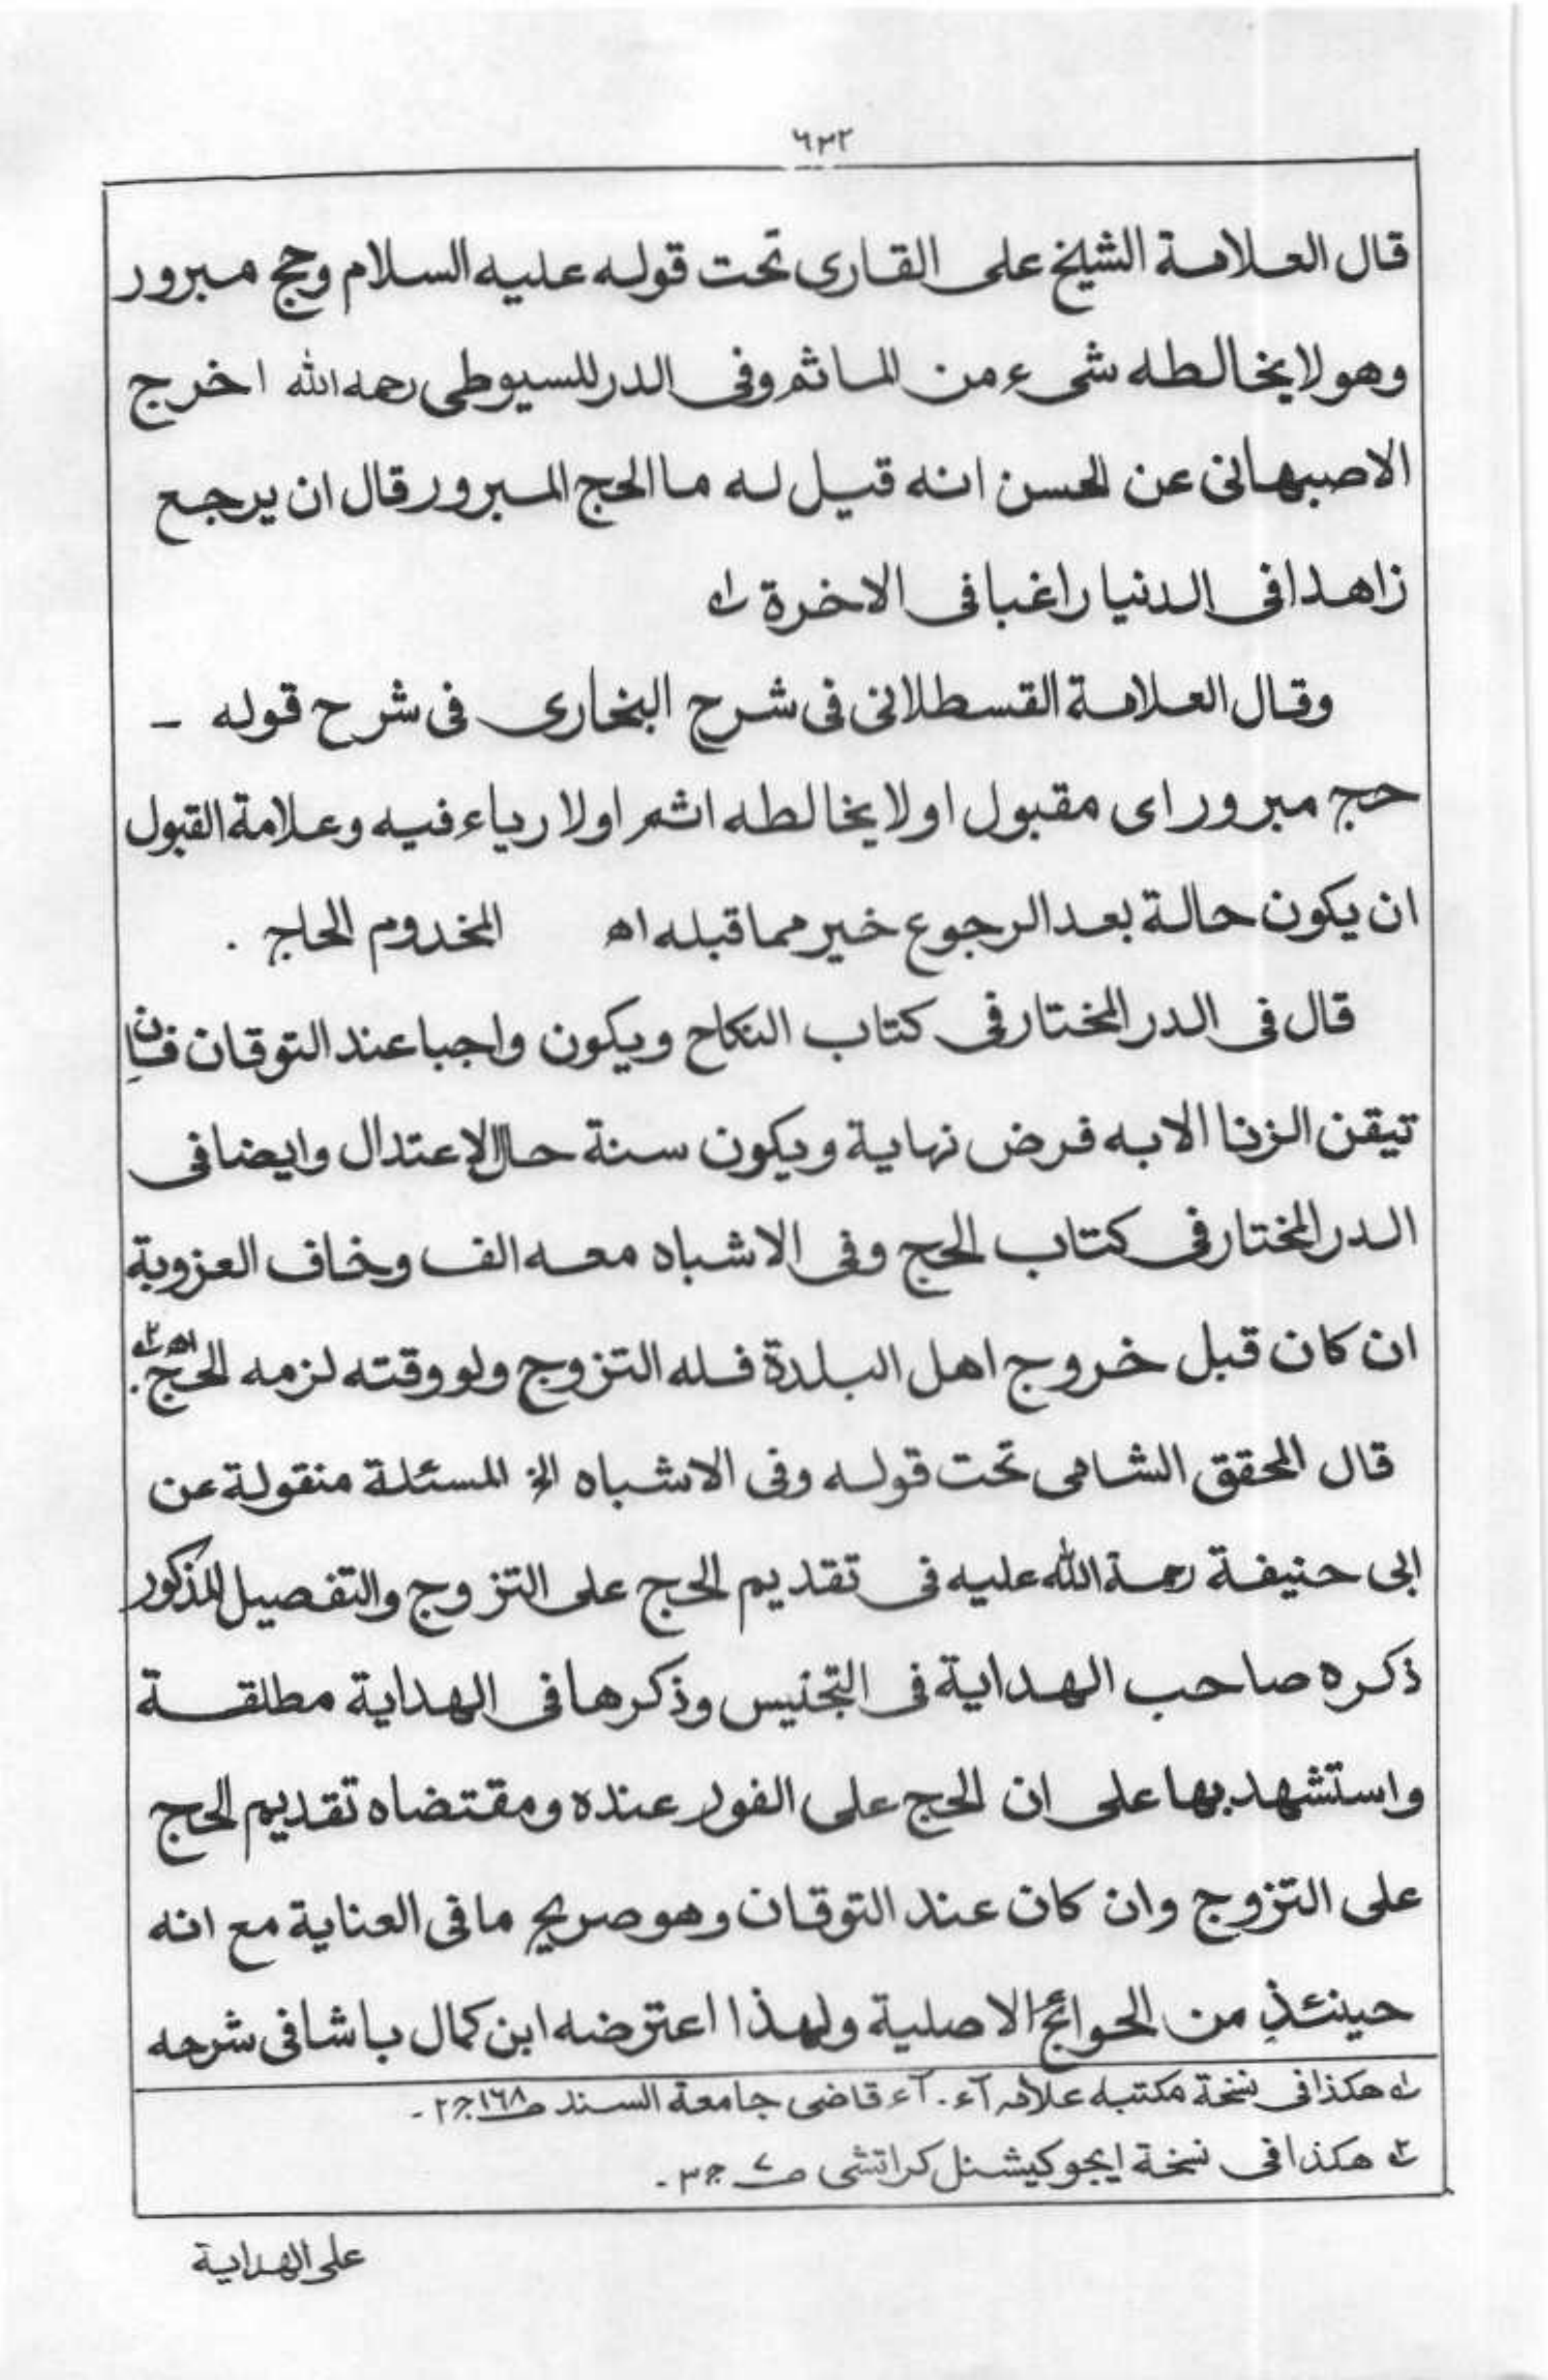 ٦٣٢
قال العلامة الشيخ على القارى تحت قوله عليه السلام وحج مبرور
وهو لا يخالطه شىء من المأثم وفى الدر للسيوطى رحمه الله اخرج
الاصبهانى عن الحسن انه قيل له ما الحج المبرور قال ان يرجع
زاهدا فى الدنيا راغبا فى الاخرة ١ه
وقال العلامة القسطلانى فى شرح البخارى فى شرح قوله -
حج مبرور اى مقبول او لا يخالطه اثم او لا رياء فيه وعلامة القبول
ان يكون حالة بعد الرجوع خير مما قبله اه المخدوم الحاج .
قال فى الدر المختار فى كتاب النكاح ويكون واجبا عند التوقان فان
تيقن الزنا الا به فرض نهاية ويكون سنة حال الاعتدال وايضا فى
الدر المختار فى كتاب الحج وفى الاشباه معه الف وخاف العزوبة
ان كان قبل خروج اهل البلدة فله التزوج ولو وقته لزمه الحج اه ٢ه.
قال المحقق الشامى تحت قوله وفى الاشباه الخ المسئلة منقولة عن
ابى حنيفة رحمة الله عليه فى تقديم الحج على التزوج والتفصيل المذكور
ذكره صاحب الهداية فى التجنيس وذكرها فى الهداية مطلقة
واستشهد بها على ان الحج على الفور عنده ومقتضاه تقديم الحج
على التزوج وان كان عند التوقان وهو صريح ما فى العناية مع انه
حينئذٍ من الحوائج الاصلية ولهذا اعترضه ابن كمال باشا فى شرحه
١ه هكذا فى نسخة مكتبه علامہ آء . آء قاضى جامعة السند صـ ١٦٨ ج ٢ -
٢ه هكذا فى نسخة ايجوكيشنل كراتشى صـ ٧ ج ٣ -
على الهداية